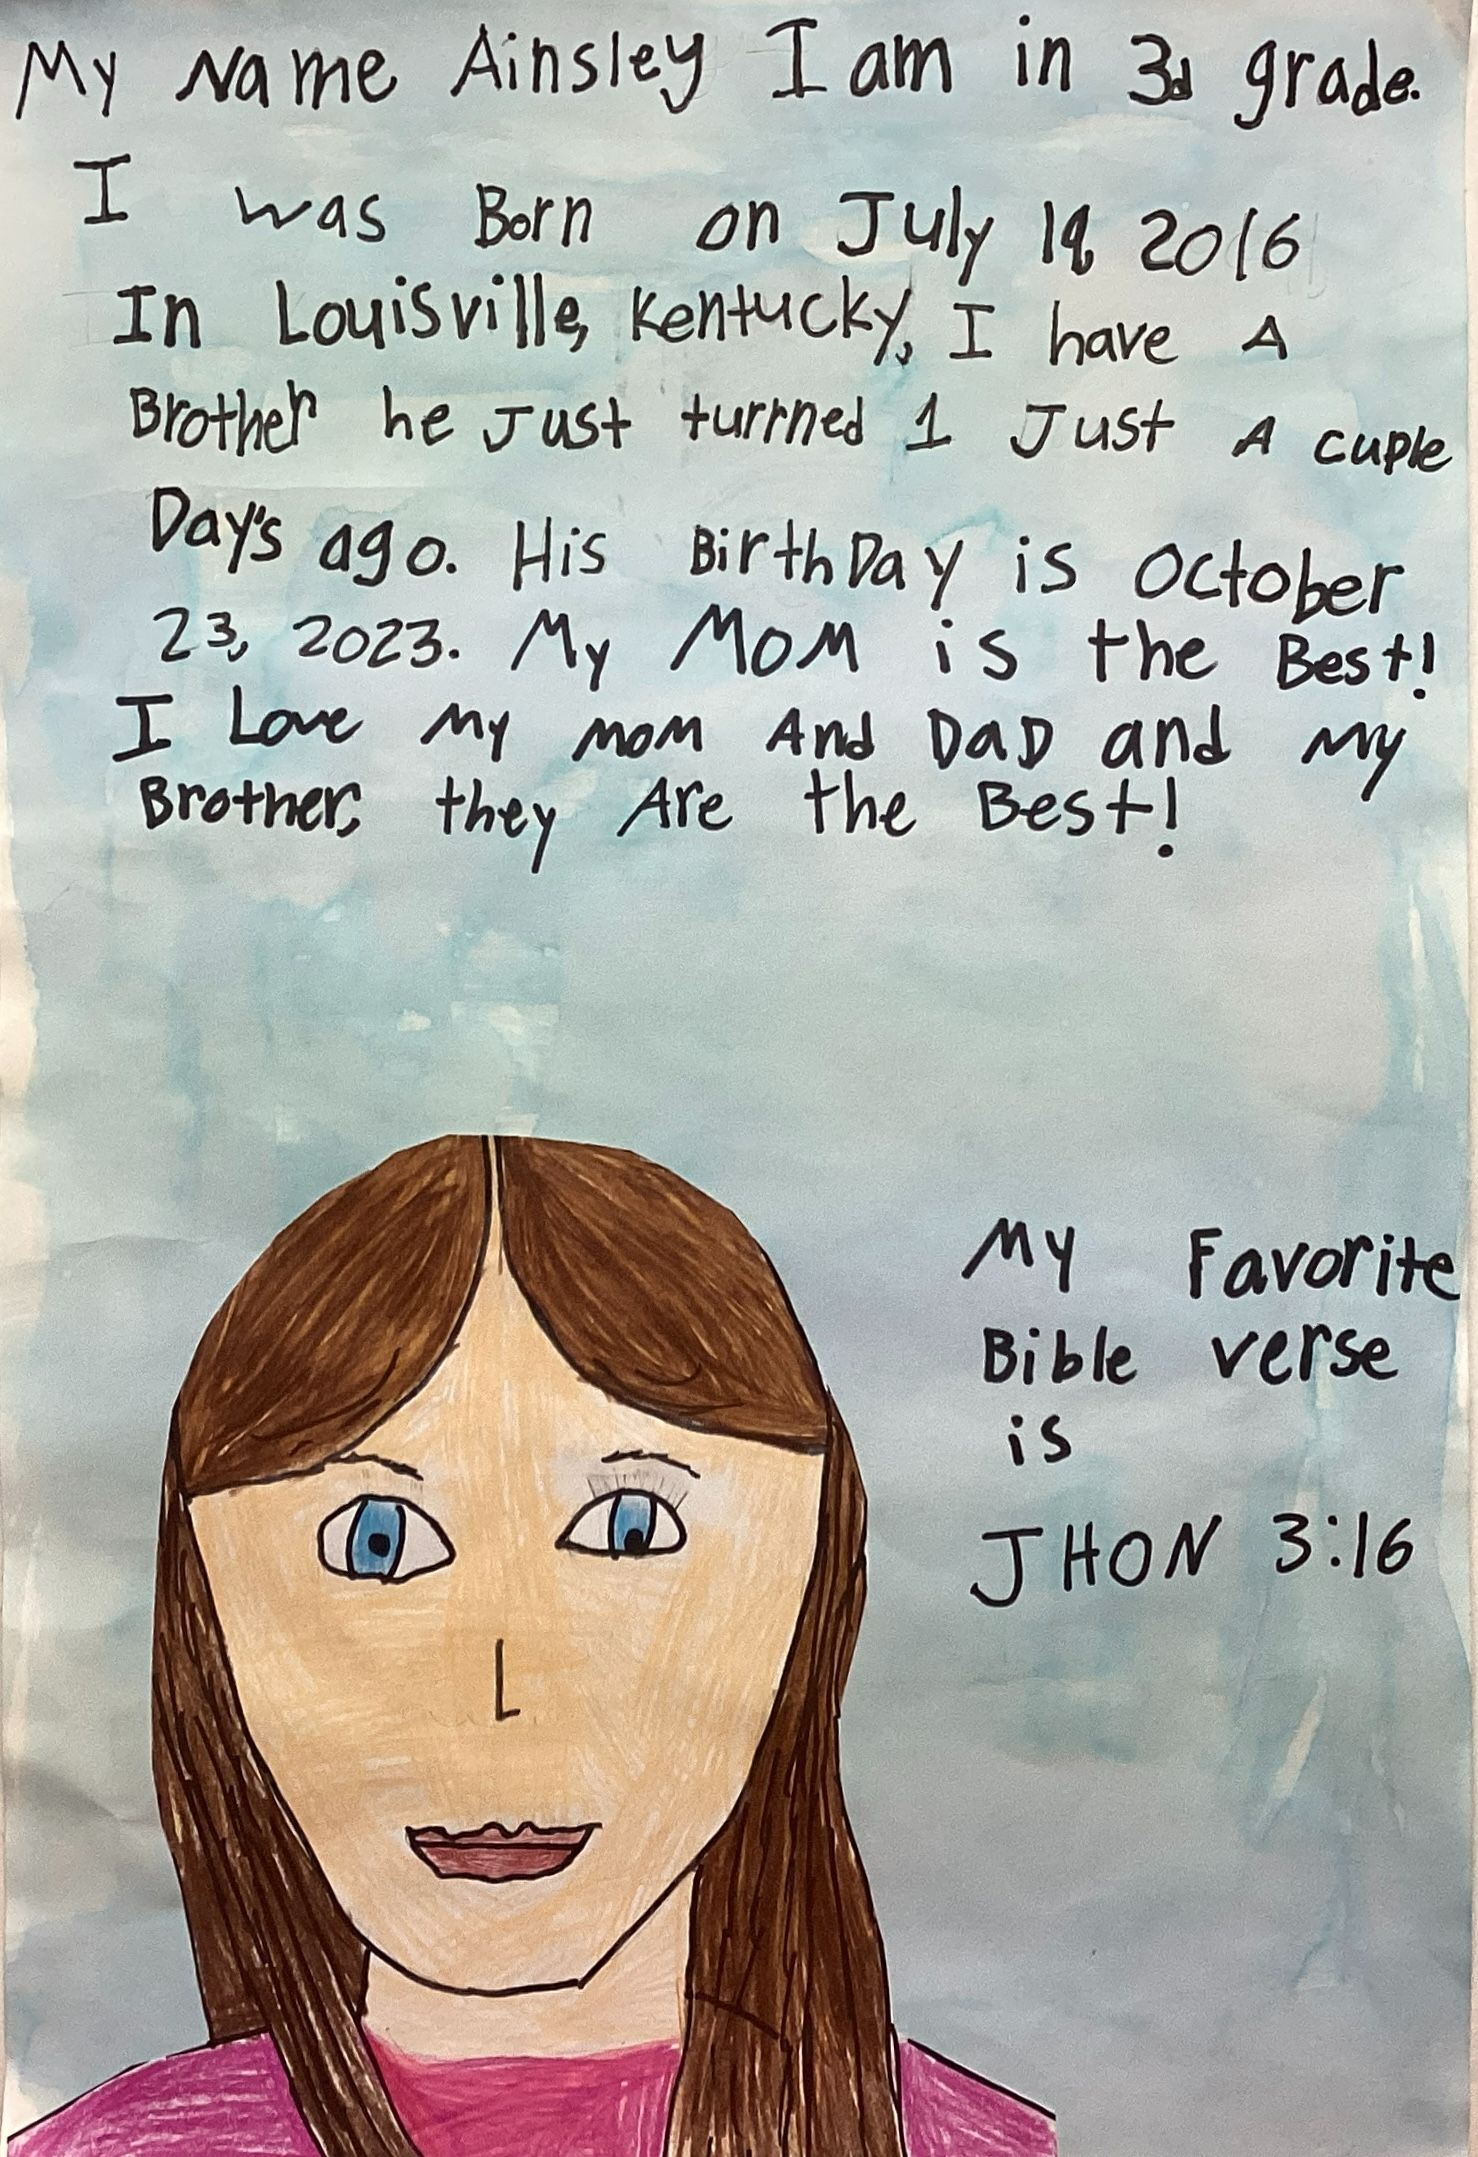 My Name Ainsley I am in 3d grade.
I was Born on July 19, 2016
In Louisville, Kentucky, I have A
Brother he Just turrned 1 Just A cuple
Day's ago. His BirthDay is October
23, 2023. My MOM is the Best!
I Love My MOM And DaD and My
Brother, they Are the Best!
My Favorite
Bible verse
is
JHON 3:16